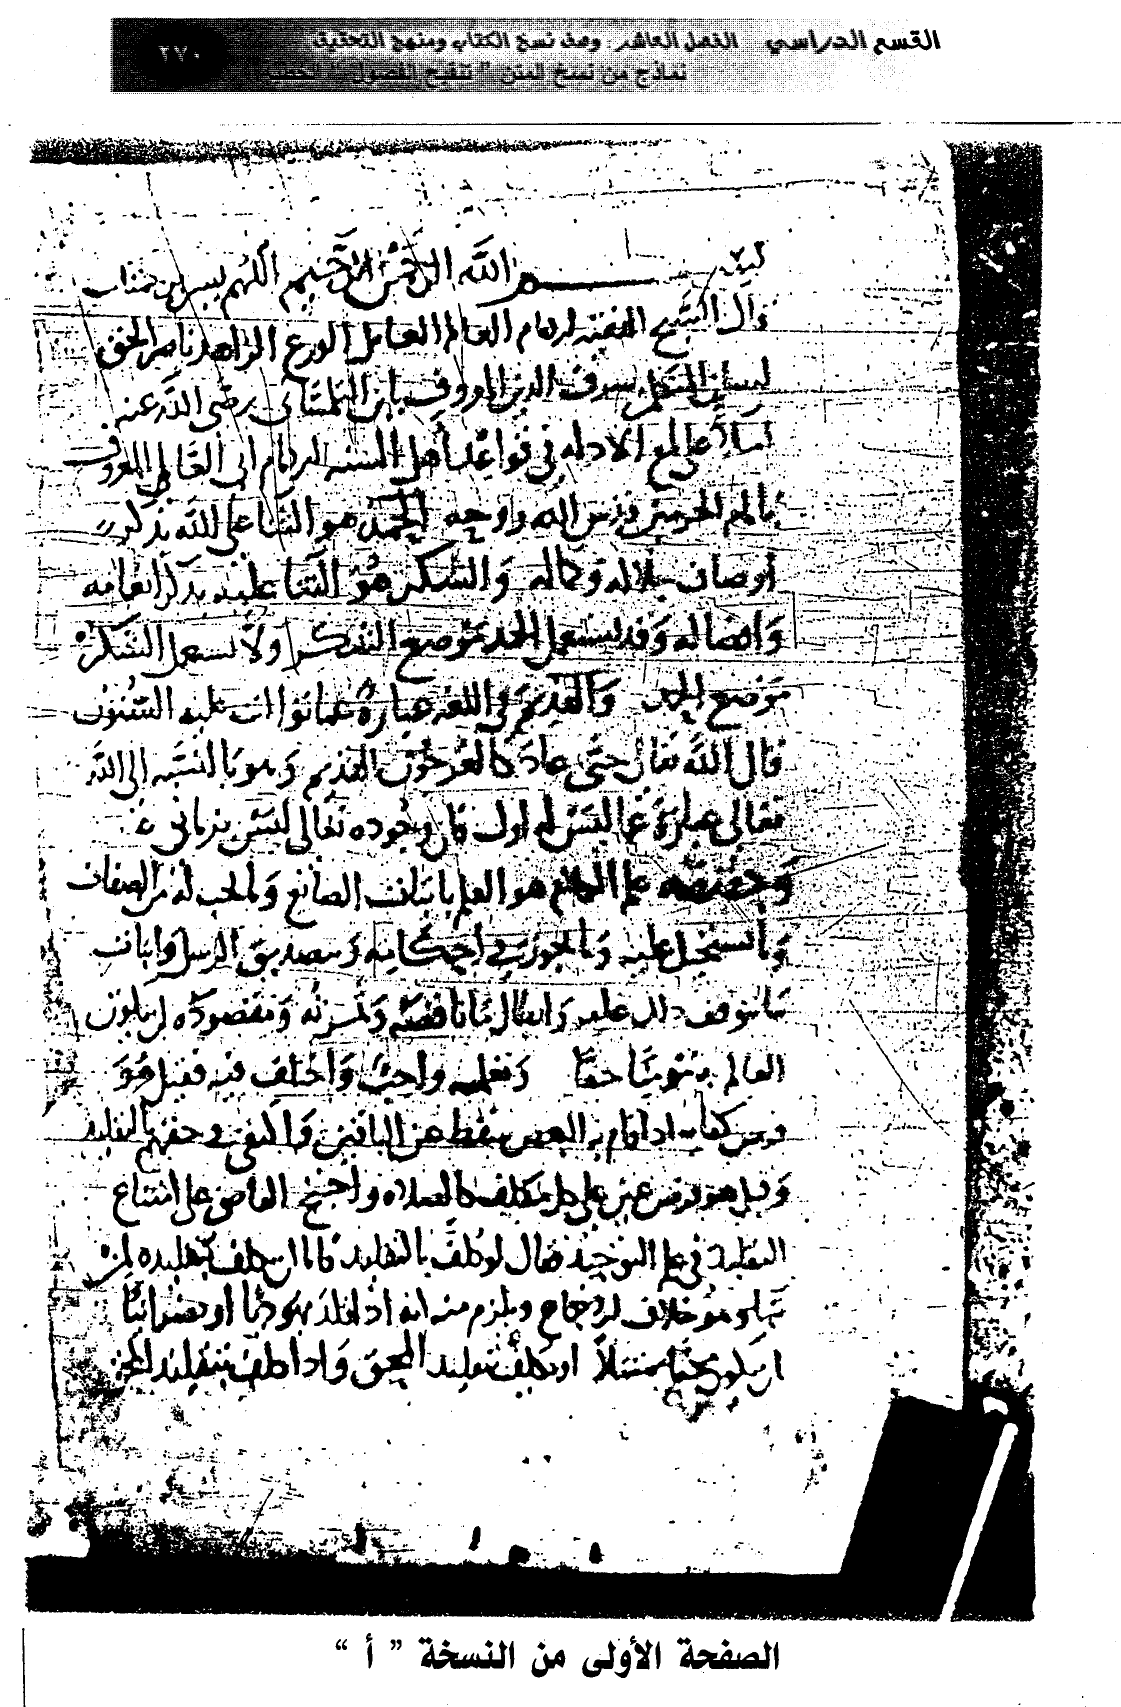 القسم الدراسي الفصل العاشر : وصف نسخ الكتاب ومنهج التحقيق
٢٧٠
نماذج من نسخ المتن " تنقيح الفصول "
بسم الله الرحمن الرحيم اللهم يسر
قال الشيخ الفقيه الامام العالم العامل الورع الزاهد ناصر الحق
لسان المتكلمين شرف الدين المعروف بابن التلمساني رضي الله عنه
املا على لمع الادله في قواعد اهل السنه للامام ابي المعالي المعروف
بامام الحرمين قدس الله روحه الحمد هو الثنا على الله بذكر
اوصاف جلاله وكماله والشكر هو الثنا عليه بذكر انعامه
وافضاله وقد يستعمل الحمد موضع الشكر ولا يستعمل الشكر
موضع الحمد والقديم في اللغه عبارة عما توالت عليه السنون
قال الله تعالى حتى عاد كالعرجون القديم وهو بالنسبه الى الله
تعالى عبارة عما ليس له اول فان وجوده تعالى ليس بزماني
وحقيقه علم الكلام هو العلم باثبات الصانع وما يجب له من الصفات
وما يستحيل عليه وما يجوز في احكامه وتصديق الرسل واثبات
ما يتوقف ذلك عليه وابطال ما يناقضه وثمرته ومقصوده ان يكون
العالم به مؤمنا حقا وتعلمه واجب واختلف فيه فقيل هو
فرض كفايه اذا قام به البعض سقط عن الباقين واكتفى في حقهم بالتقليد
وقيل هو فرض عين على كل مكلف كالصلاه واحتج القاضي على امتناع
التقليد في علم التوحيد فقال لو كلف بالتقليد فاما ان يكلف بتقليده لمن
شا وهو خلاف الاجماع ويلزم منه انه اذا قلد يهوديا او نصرانيا
ان يكون محقا ممتثلا او يكلف تقليد المحق واذا كلف بتقليد المحق
الصفحة الأولى من النسخة " أ "